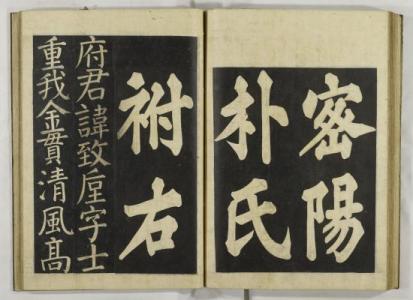 密陽
朴氏
祔右
府君諱致垕字士
重我金貫清風髙